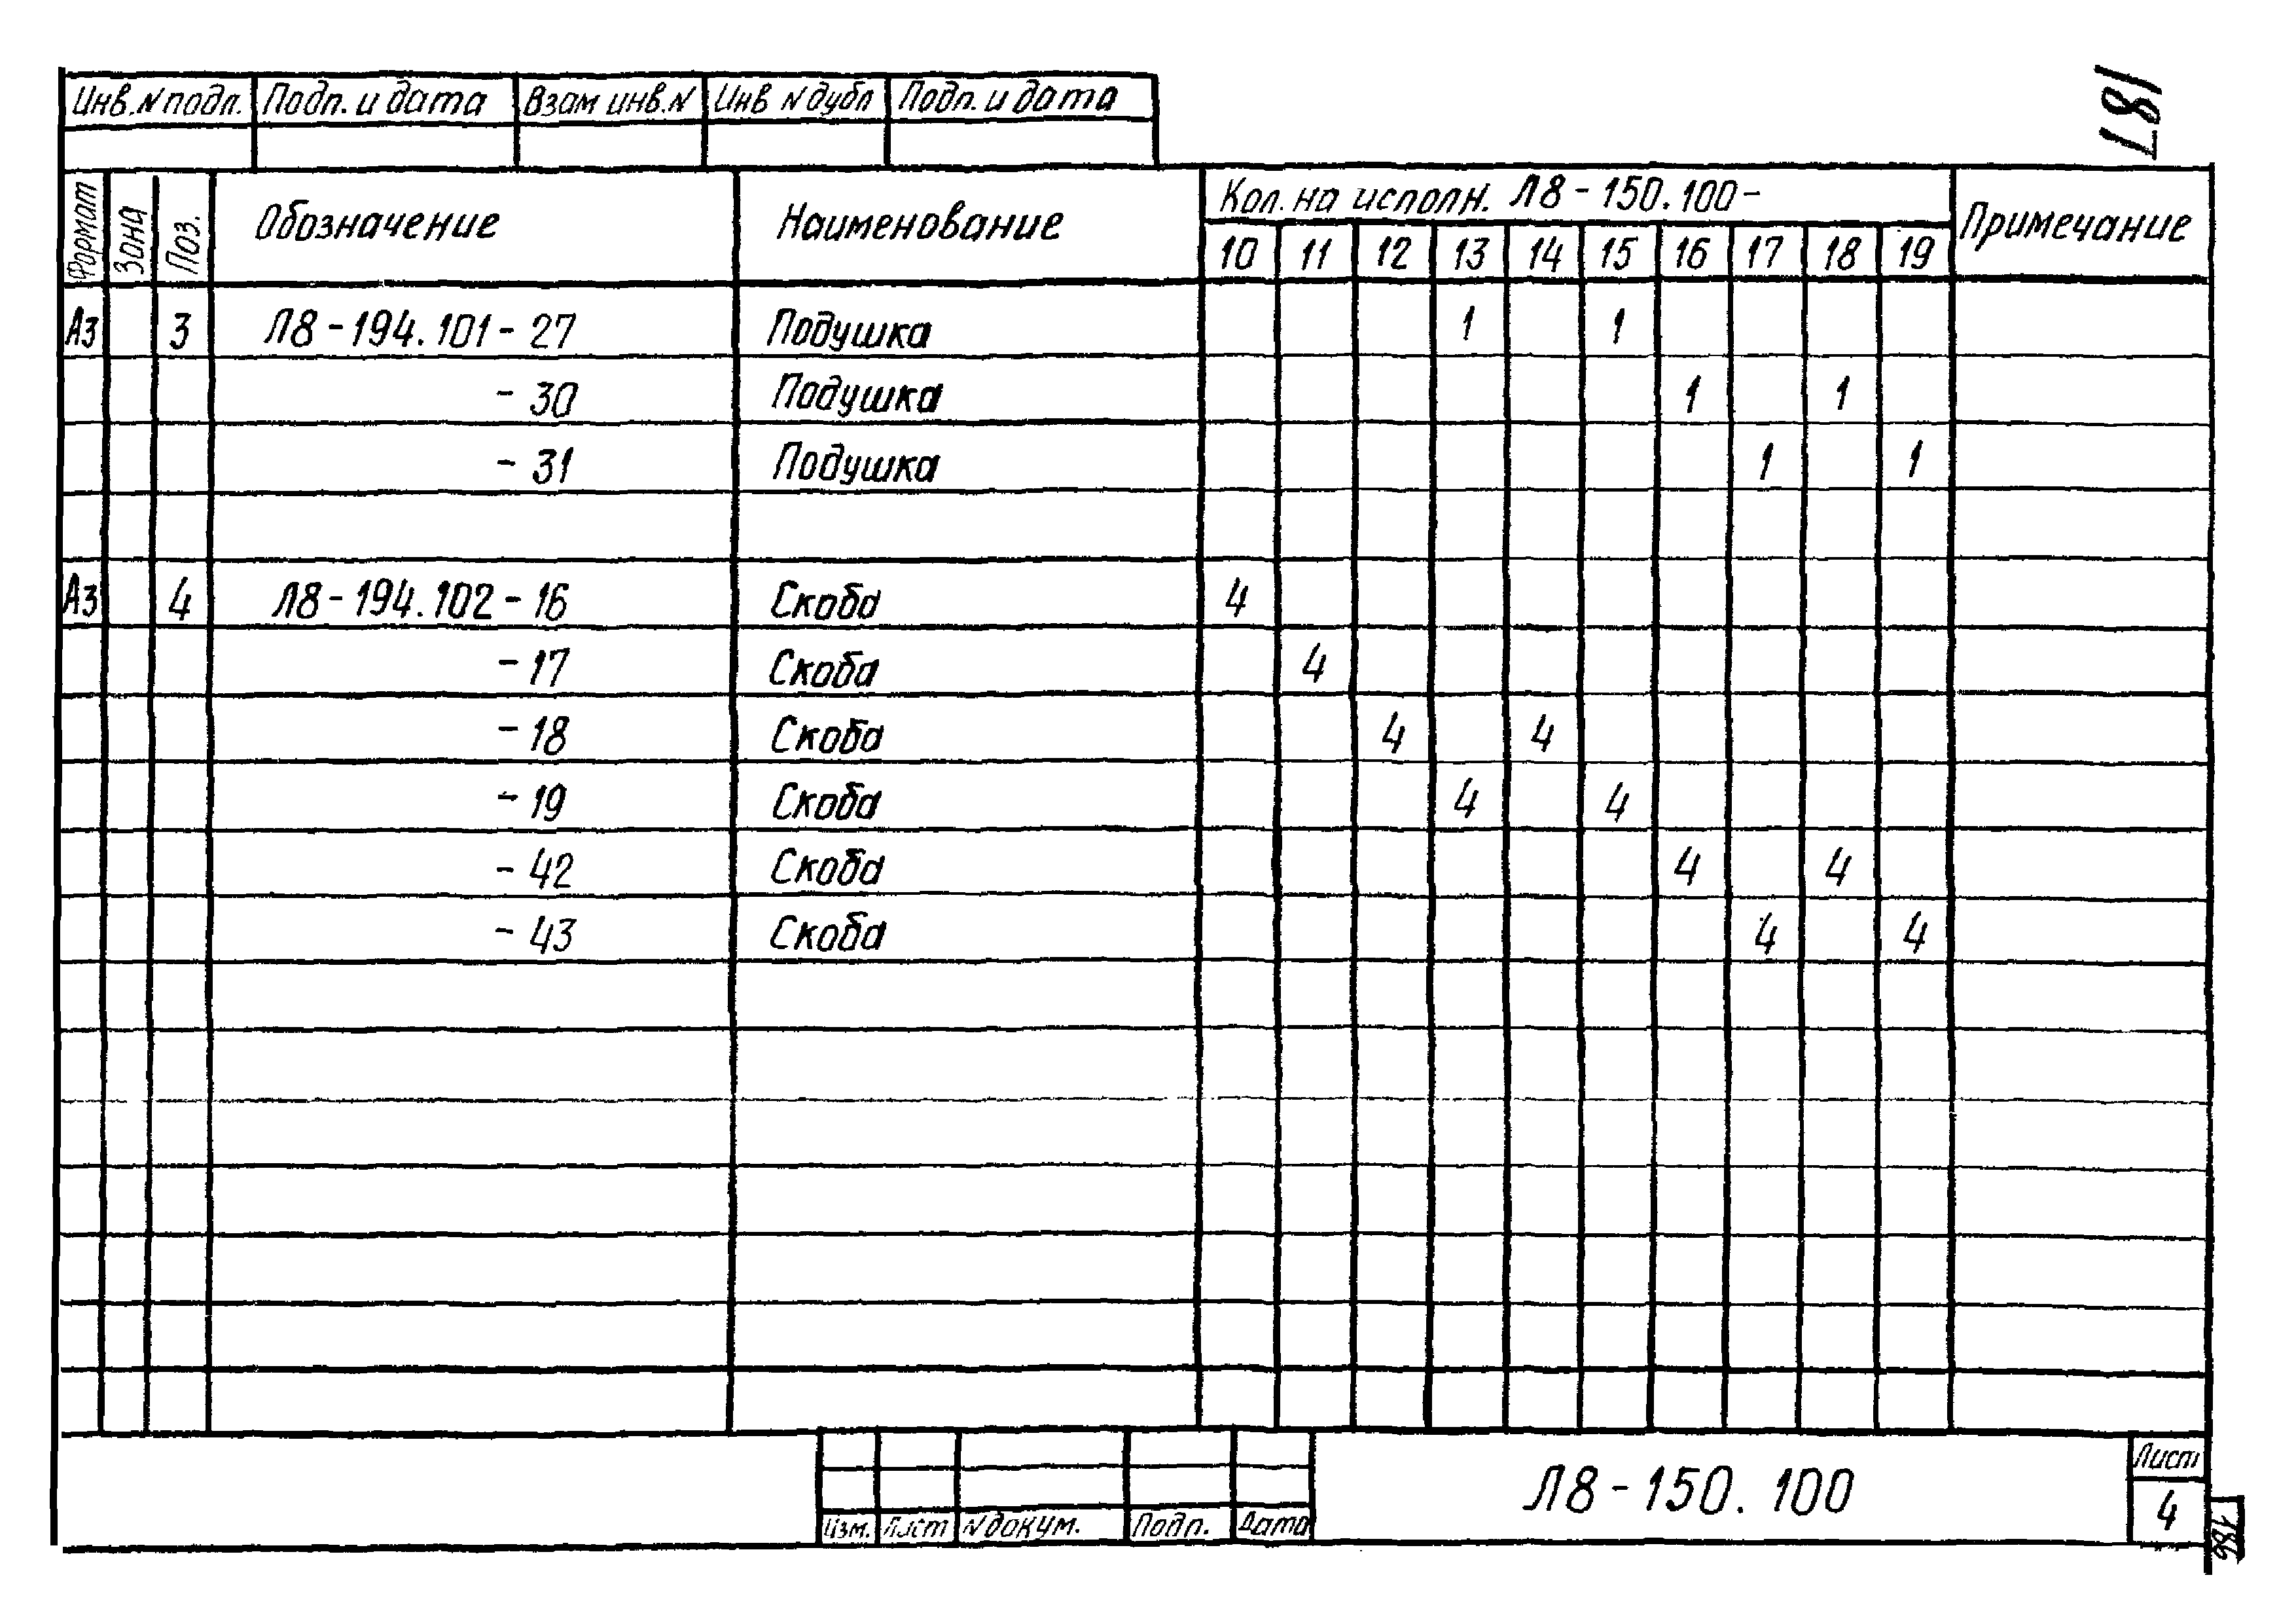 187
Инв.N подл. Подп. и дата Взам инв.N Инв N дубл Подп. и дата
Формат Зона Поз. Обозначение Наименование Кол. на исполн. Л8-150.100- Примечание
10 11 12 13 14 15 16 17 18 19
А3 3 Л8-194.101-27 Подушка 1 1
-30 Подушка 1 1
-31 Подушка 1 1
А3 4 Л8-194.102-16 Скоба 4
-17 Скоба 4
-18 Скоба 4 4
-19 Скоба 4 4
-42 Скоба 4 4
-43 Скоба 4 4
Л8-150.100 Лист
4
Изм. Лист N докум. Подп. Дата
186